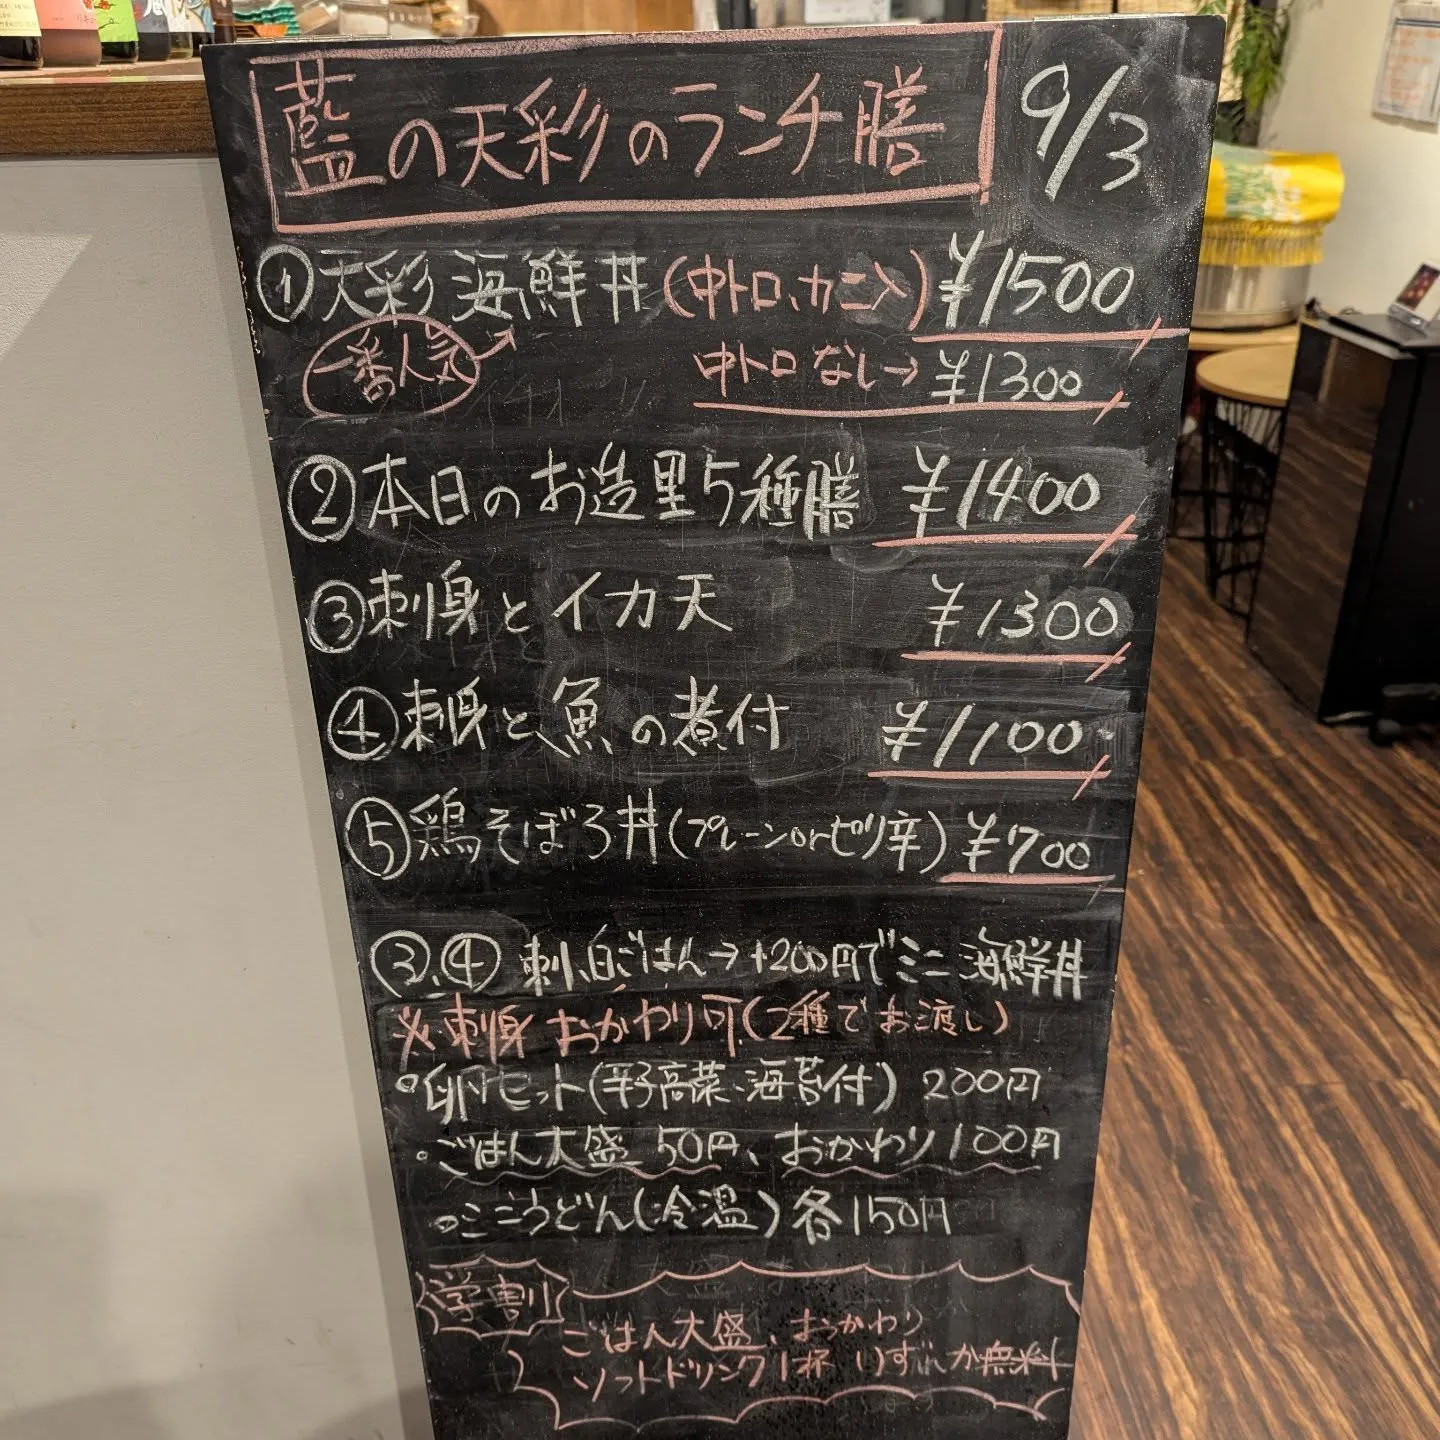 藍の天彩のランチ膳 9/3
①天彩海鮮丼(中トロ、カニ入) ¥1500
一番人気
中トロなし→¥1300
②本日のお造里5種膳 ¥1400
③刺身とイカ天 ¥1300
④刺身と魚の煮付 ¥1100
⑤鶏そぼろ丼(プレーンorピリ辛) ¥700
③、④ 刺、白ごはん→+200円でミニ海鮮丼
※刺身おかわり可(2種でお渡し)
○卵セット(辛子高菜・海苔付) 200円
○ごはん大盛 50円、おかわり100円
○ミニうどん(冷温)各150円
学割
ごはん大盛、おかわり
ソフトドリンク1杯 いずれか無料